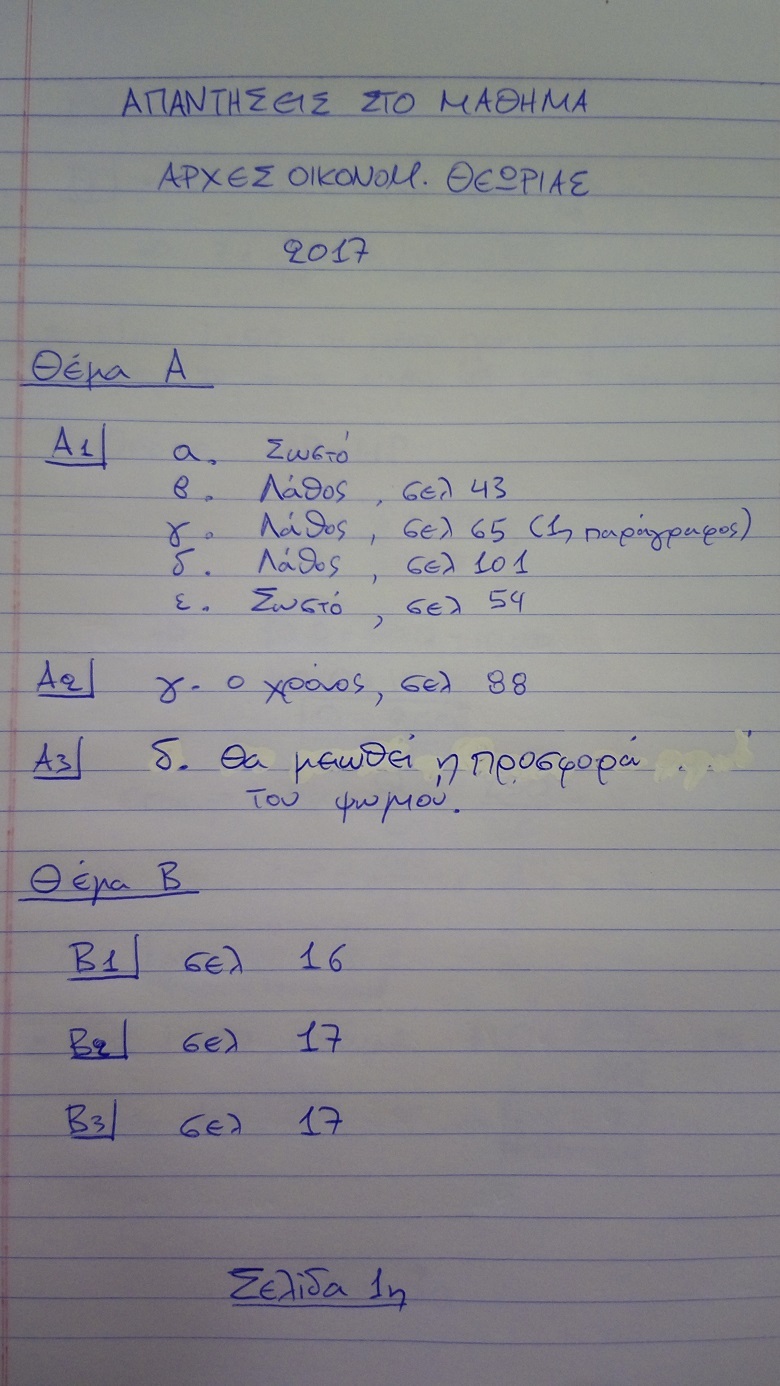 ΑΠΑΝΤΗΣΕΙΣ ΣΤΟ ΜΑΘΗΜΑ
ΑΡΧΕΣ ΟΙΚΟΝΟΜ. ΘΕΩΡΙΑΣ
2017
Θέμα Α
Α1 α. Σωστό
β. Λάθος, σελ 43
γ. Λάθος, σελ 65 (1η παράγραφος)
δ. Λάθος, σελ 101
ε. Σωστό, σελ 54
Α2 γ. ο χρόνος, σελ 88
Α3 δ. Θα μειωθεί η προσφορά
του ψωμιού.
Θέμα Β
Β1 σελ 16
Β2 σελ 17
Β3 σελ 17
Σελίδα 1η